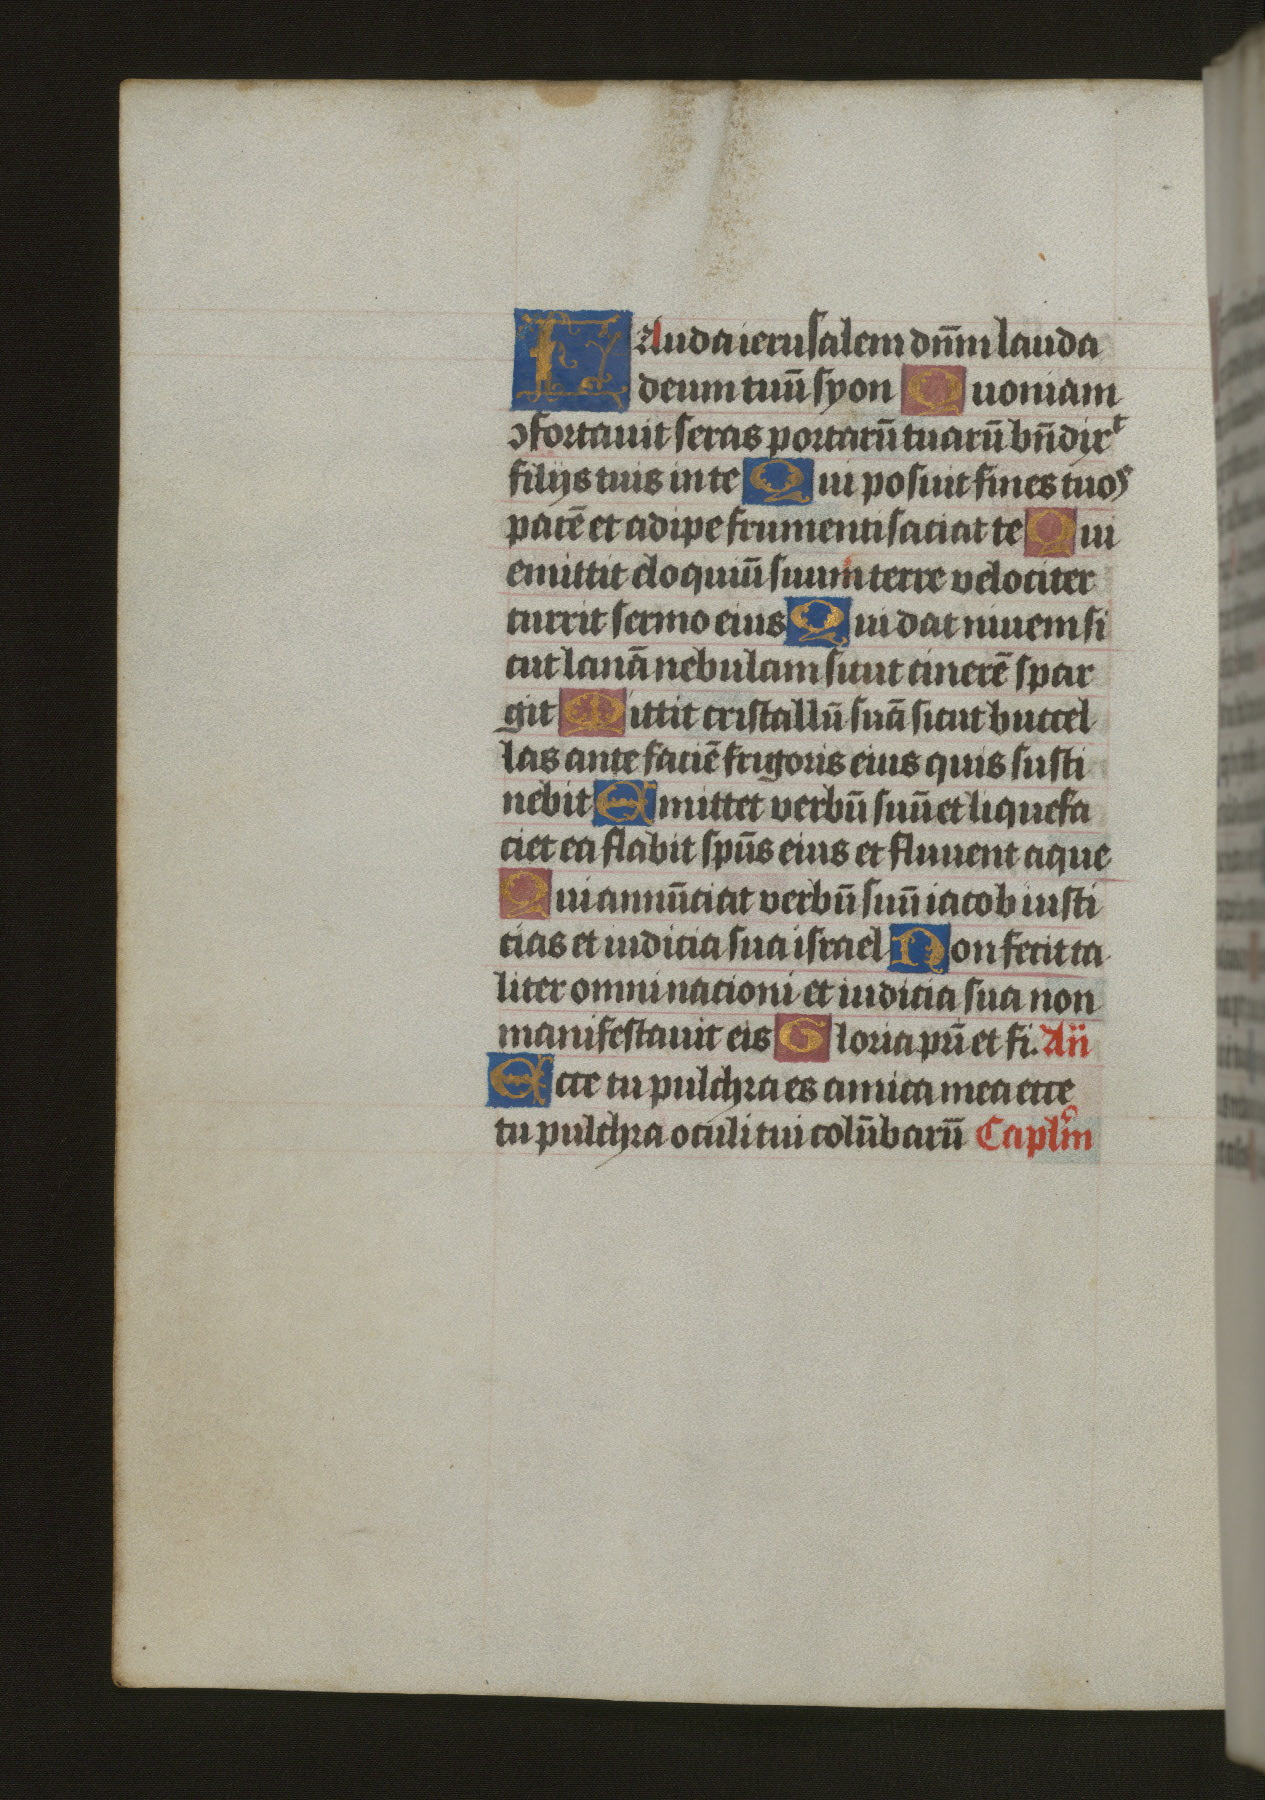 LAuda ierusalem dn̄m lauda
deum tuū syon Quoniam
ↄfortauit seras portarū tuarū bn̄dixᵗ
filijs tuis in te Qui posuit fines tuoˢ
pacē et adipe frumenti saciat te Qui
emittit eloquiū suum terre velociter
currit sermo eius Qui dat niuem si
cut lanā nebulam sicut cinerē spar
git Mittit cristallū suā sicut buccel
las ante faciē frigoris eius quis susti
nebit Emittet verbū suū et liquefa
ciet ea flabit sp̄us eius et fluuent aque
Qui annūciat verbū suū iacob iusti
cias et iudicia sua israel Non fecit ta
liter omni nacioni et iudicia sua non
manifestauit eis Gloria pr̄i et fi. An̄
Ecce tu pulchra es amica mea ecce
tu pulchra oculi tui colūbarū Caplm̄